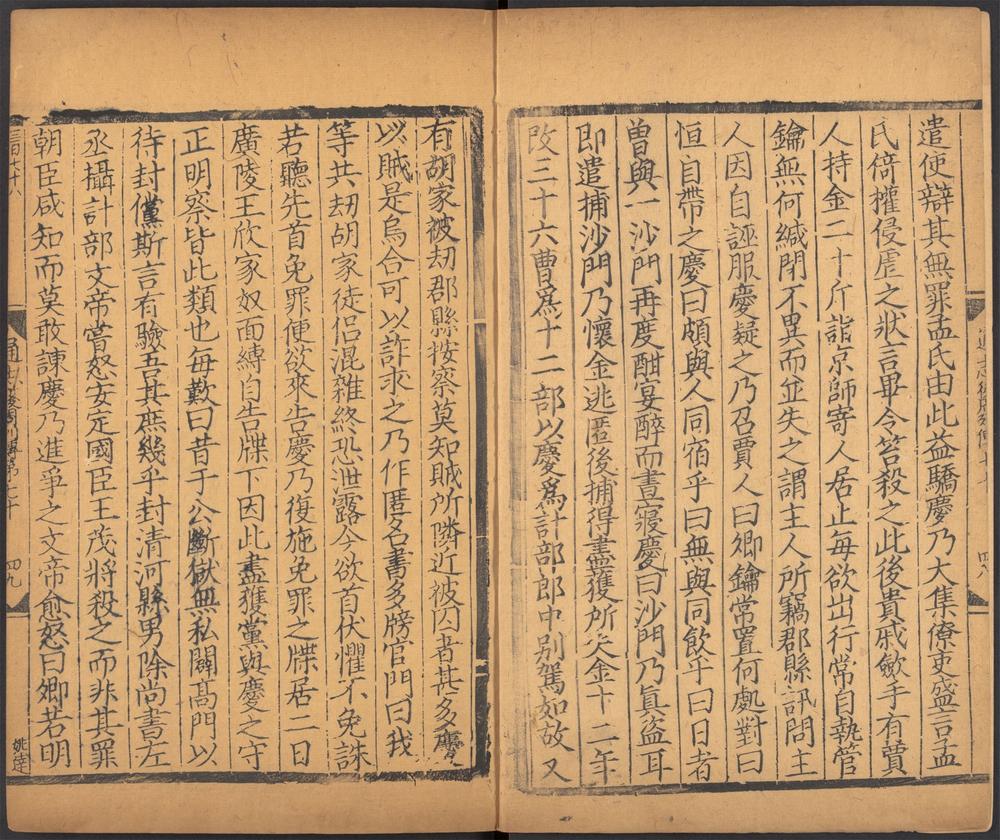 遣使辯其無罪孟氏由此益驕慶乃大集僚吏盛言孟
氏倚權侵虐之狀言畢令笞殺之此後貴戚斂手有賈
人持金二十斤詣京師寄人居止每欲出行常自執管
鑰無何緘閉不異而並失之謂主人所竊郡縣訊問主
人因自誣服慶疑之乃召賈人曰卿鑰常置何處對曰
恒自帶之慶曰頗與人同宿乎曰無與同飲乎曰日者
曾與一沙門再度酣宴醉而晝寢慶曰沙門乃真盜耳
即遣捕沙門乃懷金逃匿後捕得盡獲所失金十二年
改三十六曹為十二部以慶為計部郎中別駕如故又
有胡家被劫郡縣按察莫知賊所隣近被囚者甚多慶
以賊是烏合可以詐求之乃作匿名書多牓官門曰我
等共劫胡家徒侶混雜終恐泄露今欲首伏懼不免誅
若聽先首免罪便欲來告慶乃復施免罪之牒居二日
廣陵王欣家奴面縛自告牒下因此盡獲黨與慶之守
正明察皆此類也每歎曰昔于公斷獄無私闢高門以
待封儻斯言有驗吾其庶幾乎封清河縣男除尚書左
丞攝計部文帝嘗怒安定國臣王茂將殺之而非其罪
朝臣咸知而莫敢諫慶乃進爭之文帝愈怒曰卿若明
四九
姚逹
四八